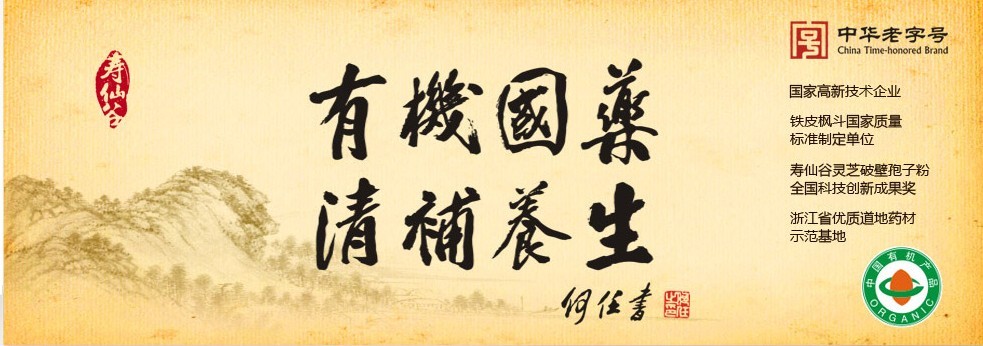 寿仙谷
有機國藥
清補養生
何任書
何任之印
中华老字号
China Time-honored Brand
国家高新技术企业
铁皮枫斗国家质量
标准制定单位
寿仙谷灵芝破壁孢子粉
全国科技创新成果奖
浙江省优质道地药材
示范基地
中国有机产品
ORGANIC